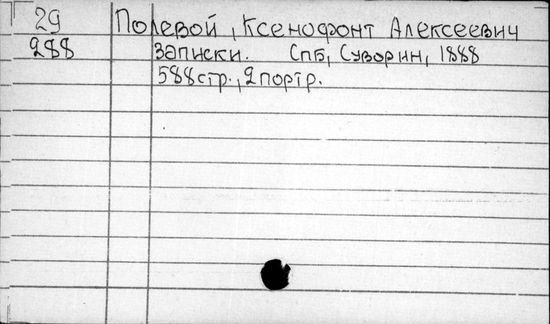 29 Полевой, Ксенофонт Алексеевич
288 Записки. СПб, Суворин, 1888
588стр., 2портр.